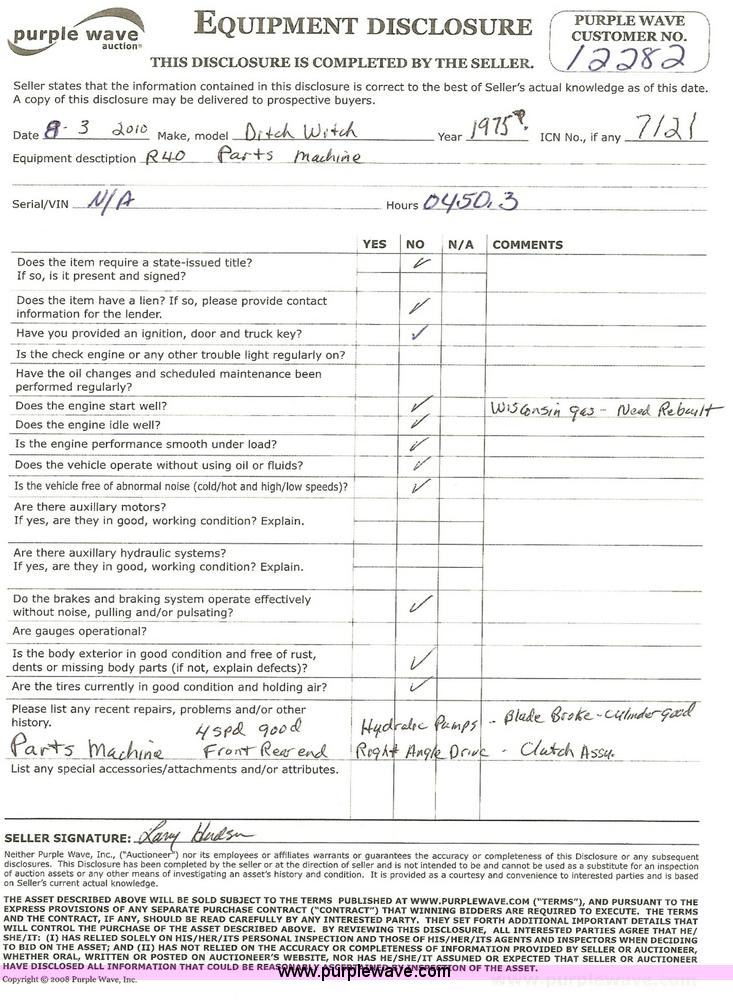 purple wave
auction®
EQUIPMENT DISCLOSURE
THIS DISCLOSURE IS COMPLETED BY THE SELLER.
PURPLE WAVE
CUSTOMER NO.
12282
Seller states that the information contained in this disclosure is correct to the best of Seller's actual knowledge as of this date.
A copy of this disclosure may be delivered to prospective buyers.
Date 8-3 2010 Make, model Ditch Witch Year 1975?. ICN No., if any 7121
Equipment desctiption R40 Parts Machine
Serial/VIN N/A Hours 0450.3
YES NO N/A COMMENTS
Does the item require a state-issued title? ✓
If so, is it present and signed?
Does the item have a lien? If so, please provide contact ✓
information for the lender.
Have you provided an ignition, door and truck key? ✓
Is the check engine or any other trouble light regularly on?
Have the oil changes and scheduled maintenance been
performed regularly?
Does the engine start well? ✓ Wisconsin gas - Need Rebuilt
Does the engine idle well? ✓
Is the engine performance smooth under load? ✓
Does the vehicle operate without using oil or fluids? ✓
Is the vehicle free of abnormal noise (cold/hot and high/low speeds)? ✓
Are there auxillary motors?
If yes, are they in good, working condition? Explain.
Are there auxillary hydraulic systems?
If yes, are they in good, working condition? Explain.
Do the brakes and braking system operate effectively ✓
without noise, pulling and/or pulsating?
Are gauges operational?
Is the body exterior in good condition and free of rust, ✓
dents or missing body parts (if not, explain defects)?
Are the tires currently in good condition and holding air? ✓
Please list any recent repairs, problems and/or other
history. 4 spd good Hydralic Pumps - Blade Broke - Culinder good
Parts Machine Front Rear end Right Angle Drive - Clutch Assy.
List any special accessories/attachments and/or attributes.
SELLER SIGNATURE: Larry Hudson
Neither Purple Wave, Inc., ("Auctioneer") nor its employees or affiliates warrants or guarantees the accuracy or completeness of this Disclosure or any subsequent
disclosures. This Disclosure has been completed by the seller or at the direction of seller and is not intended to be and cannot be used as a substitute for an inspection
of auction assets or any other means of investigating an asset's history and condition. It is provided as a courtesy and convenience to interested parties and is based
on Seller's current actual knowledge.
THE ASSET DESCRIBED ABOVE WILL BE SOLD SUBJECT TO THE TERMS PUBLISHED AT WWW.PURPLEWAVE.COM ("TERMS"), AND PURSUANT TO THE
EXPRESS PROVISIONS OF ANY SEPARATE PURCHASE CONTRACT ("CONTRACT") THAT WINNING BIDDERS ARE REQUIRED TO EXECUTE. THE TERMS
AND THE CONTRACT, IF ANY, SHOULD BE READ CAREFULLY BY ANY INTERESTED PARTY. THEY SET FORTH ADDITIONAL IMPORTANT DETAILS THAT
WILL CONTROL THE PURCHASE OF THE ASSET DESCRIBED ABOVE. BY REVIEWING THIS DISCLOSURE, ALL INTERESTED PARTIES AGREE THAT HE/
SHE/IT: (I) HAS RELIED SOLELY ON HIS/HER/ITS PERSONAL INSPECTION AND THOSE OF HIS/HER/ITS AGENTS AND INSPECTORS WHEN DECIDING
TO BID ON THE ASSET; AND (II) HAS NOT RELIED ON THE ACCURACY OR COMPLETENESS OF INFORMATION PROVIDED BY SELLER OR AUCTIONEER,
WHETHER ORAL, WRITTEN OR POSTED ON AUCTIONEER'S WEBSITE, NOR HAS HE/SHE/IT ASSUMED OR EXPECTED THAT SELLER OR AUCTIONEER
HAVE DISCLOSED ALL INFORMATION THAT COULD BE REASONABLY ASCERTAINED BY INSPECTION OF THE ASSET.
www.purplewave.com
Copyright © 2008 Purple Wave, Inc.